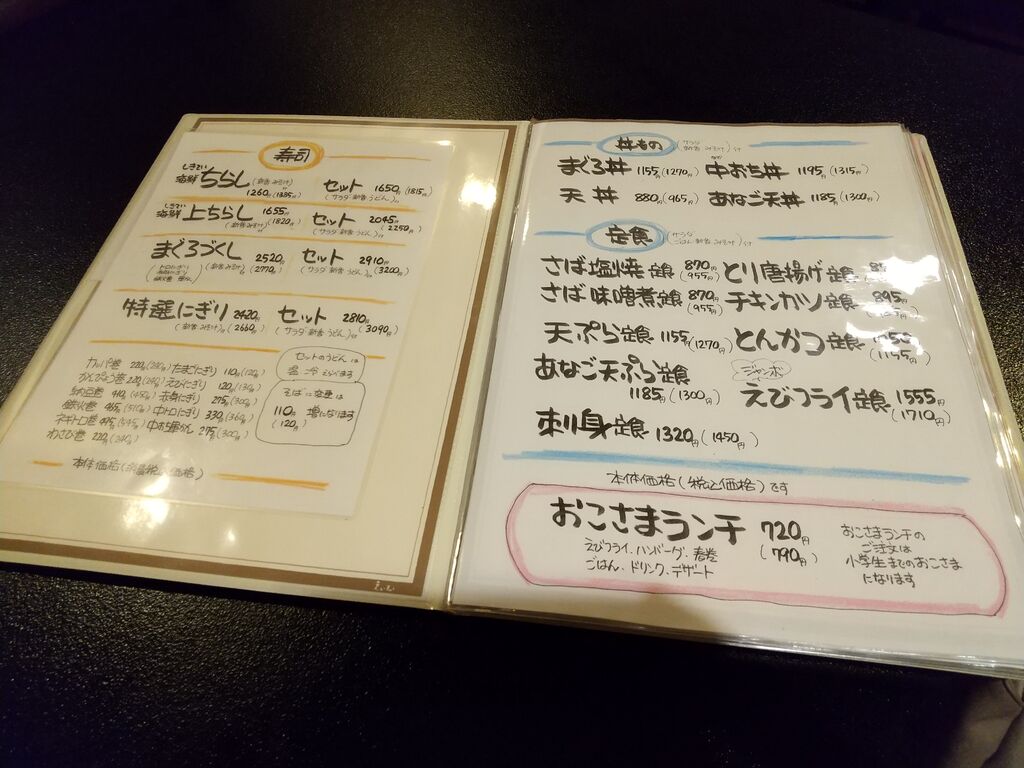 寿司
海鮮ちらし セット 1650円(1815円)
1260(1385円) (サラダ 新香 うどん)付
海鮮上ちらし 1655円(1820円) セット 2045円(2250円)
(サラダ 新香 うどん)付
まぐろづくし 2520円(2770円) セット 2910円(3200円)
(新香 みそ汁)付 (サラダ 新香 うどん)付
特選にぎり 2420円(2660円) セット 2810円(3090円)
(新香 みそ汁)付 (サラダ 新香 うどん)付
カッパ巻 たまごにぎり 110円(120円)
かんぴょう巻 えびにぎり 120円(130円)
納豆巻 410(450円) 赤身にぎり 275円(300円)
鉄火巻 465円(510円) 中トロにぎり 330円(360円)
ネギトロ巻 中おち軍かん 275円(300円)
わさび巻 220円(240円)
セットのうどんは
温 冷 えらべます
そばに変更は
110円 増になります
(120円)
本体価格(税込価格)
丼もの (サラダ 新香 みそ汁)付
まぐろ丼 1155円(1270円) 中おち丼 1195円(1315円)
天丼 880円(965円) あなご天丼 1185円(1300円)
定食 (サラダ ごはん 新香 みそ汁)付
さば塩焼定食 870円(955円) とり唐揚げ定食
さば味噌煮定食 870円(955円) チキンカツ定食 895円
天ぷら定食 1155円(1270円) とんかつ定食
あなご天ぷら定食 1185円(1300円)
ジャンボ
えびフライ定食 1555円(1710円)
刺身定食 1320円(1450円)
本体価格(税込価格)です
おこさまランチ 720円(790円)
えびフライ、ハンバーグ、春巻
ごはん、ドリンク、デザート
おこさまランチの
ご注文は
小学生までのおこさま
になります